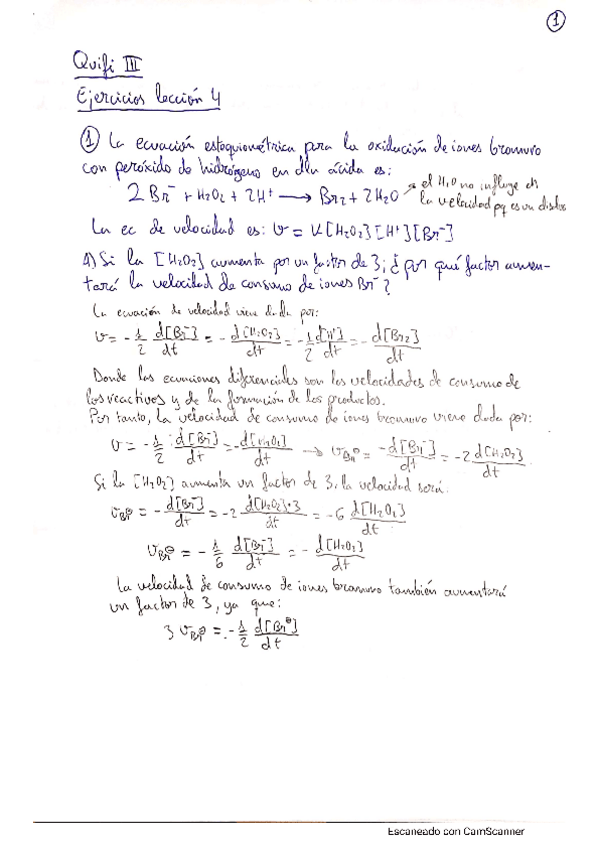 1
Quifi III
Ejercicios lección 4
① La ecuación estequiométrica para la oxidación de iones bromuro
con peróxido de hidrógeno en dln ácida es:
2 Br⁻ + H₂O₂ + 2H⁺ → Br₂ + 2H₂O el H₂O no influye en
la velocidad pq es un disolv
La ec de velocidad es: v = K[H₂O₂][H⁺][Br⁻]
1) Si la [H₂O₂] aumenta por un factor de 3; ¿por qué factor aumen-
tará la velocidad de consumo de iones Br⁻?
La ecuación de velocidad viene dada por:
v = - 1/2 d[Br⁻]/dt = - d[H₂O₂]/dt = - 1/2 d[H⁺]/dt = - d[Br₂]/dt
Donde las ecuaciones diferenciales son las velocidades de consumo de
los reactivos y de la formación de los productos.
Por tanto, la velocidad de consumo de iones bromuro viene dada por:
v = - 1/2 d[Br⁻]/dt = - d[H₂O₂]/dt → v_Br⊖ = - d[Br⁻]/dt = -2 d[H₂O₂]/dt
Si la [H₂O₂] aumenta un factor de 3, la velocidad será
v_Br⊖ = - d[Br⁻]/dt = -2 d[H₂O₂]·3/dt = -6 d[H₂O₂]/dt
v_Br⊖ = - 1/6 d[Br⁻]/dt = - d[H₂O₂]/dt
La velocidad de consumo de iones bromuro también aumentará
un factor de 3, ya que:
3 v_Br⊖ = - 1/2 d[Br⊖]/dt
Escaneado con CamScanner